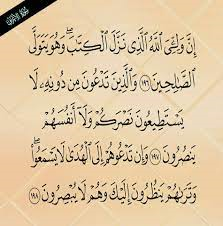 إِنَّ وَلِـِّۧيَ ٱللَّهُ ٱلَّذِى نَزَّلَ ٱلْكِتَٰبَ ۖ وَهُوَ يَتَوَلَّى
ٱلصَّٰلِحِينَ ١٩٦ وَٱلَّذِينَ تَدْعُونَ مِن دُونِهِۦ لَا
يَسْتَطِيعُونَ نَصْرَكُمْ وَلَآ أَنفُسَهُمْ
يَنصُرُونَ ١٩٧ وَإِن تَدْعُوهُمْ إِلَى ٱلْهُدَىٰ لَا يَسْمَعُوا۟ ۖ
وَتَرَىٰهُمْ يَنظُرُونَ إِلَيْكَ وَهُمْ لَا يُبْصِرُونَ ١٩٨